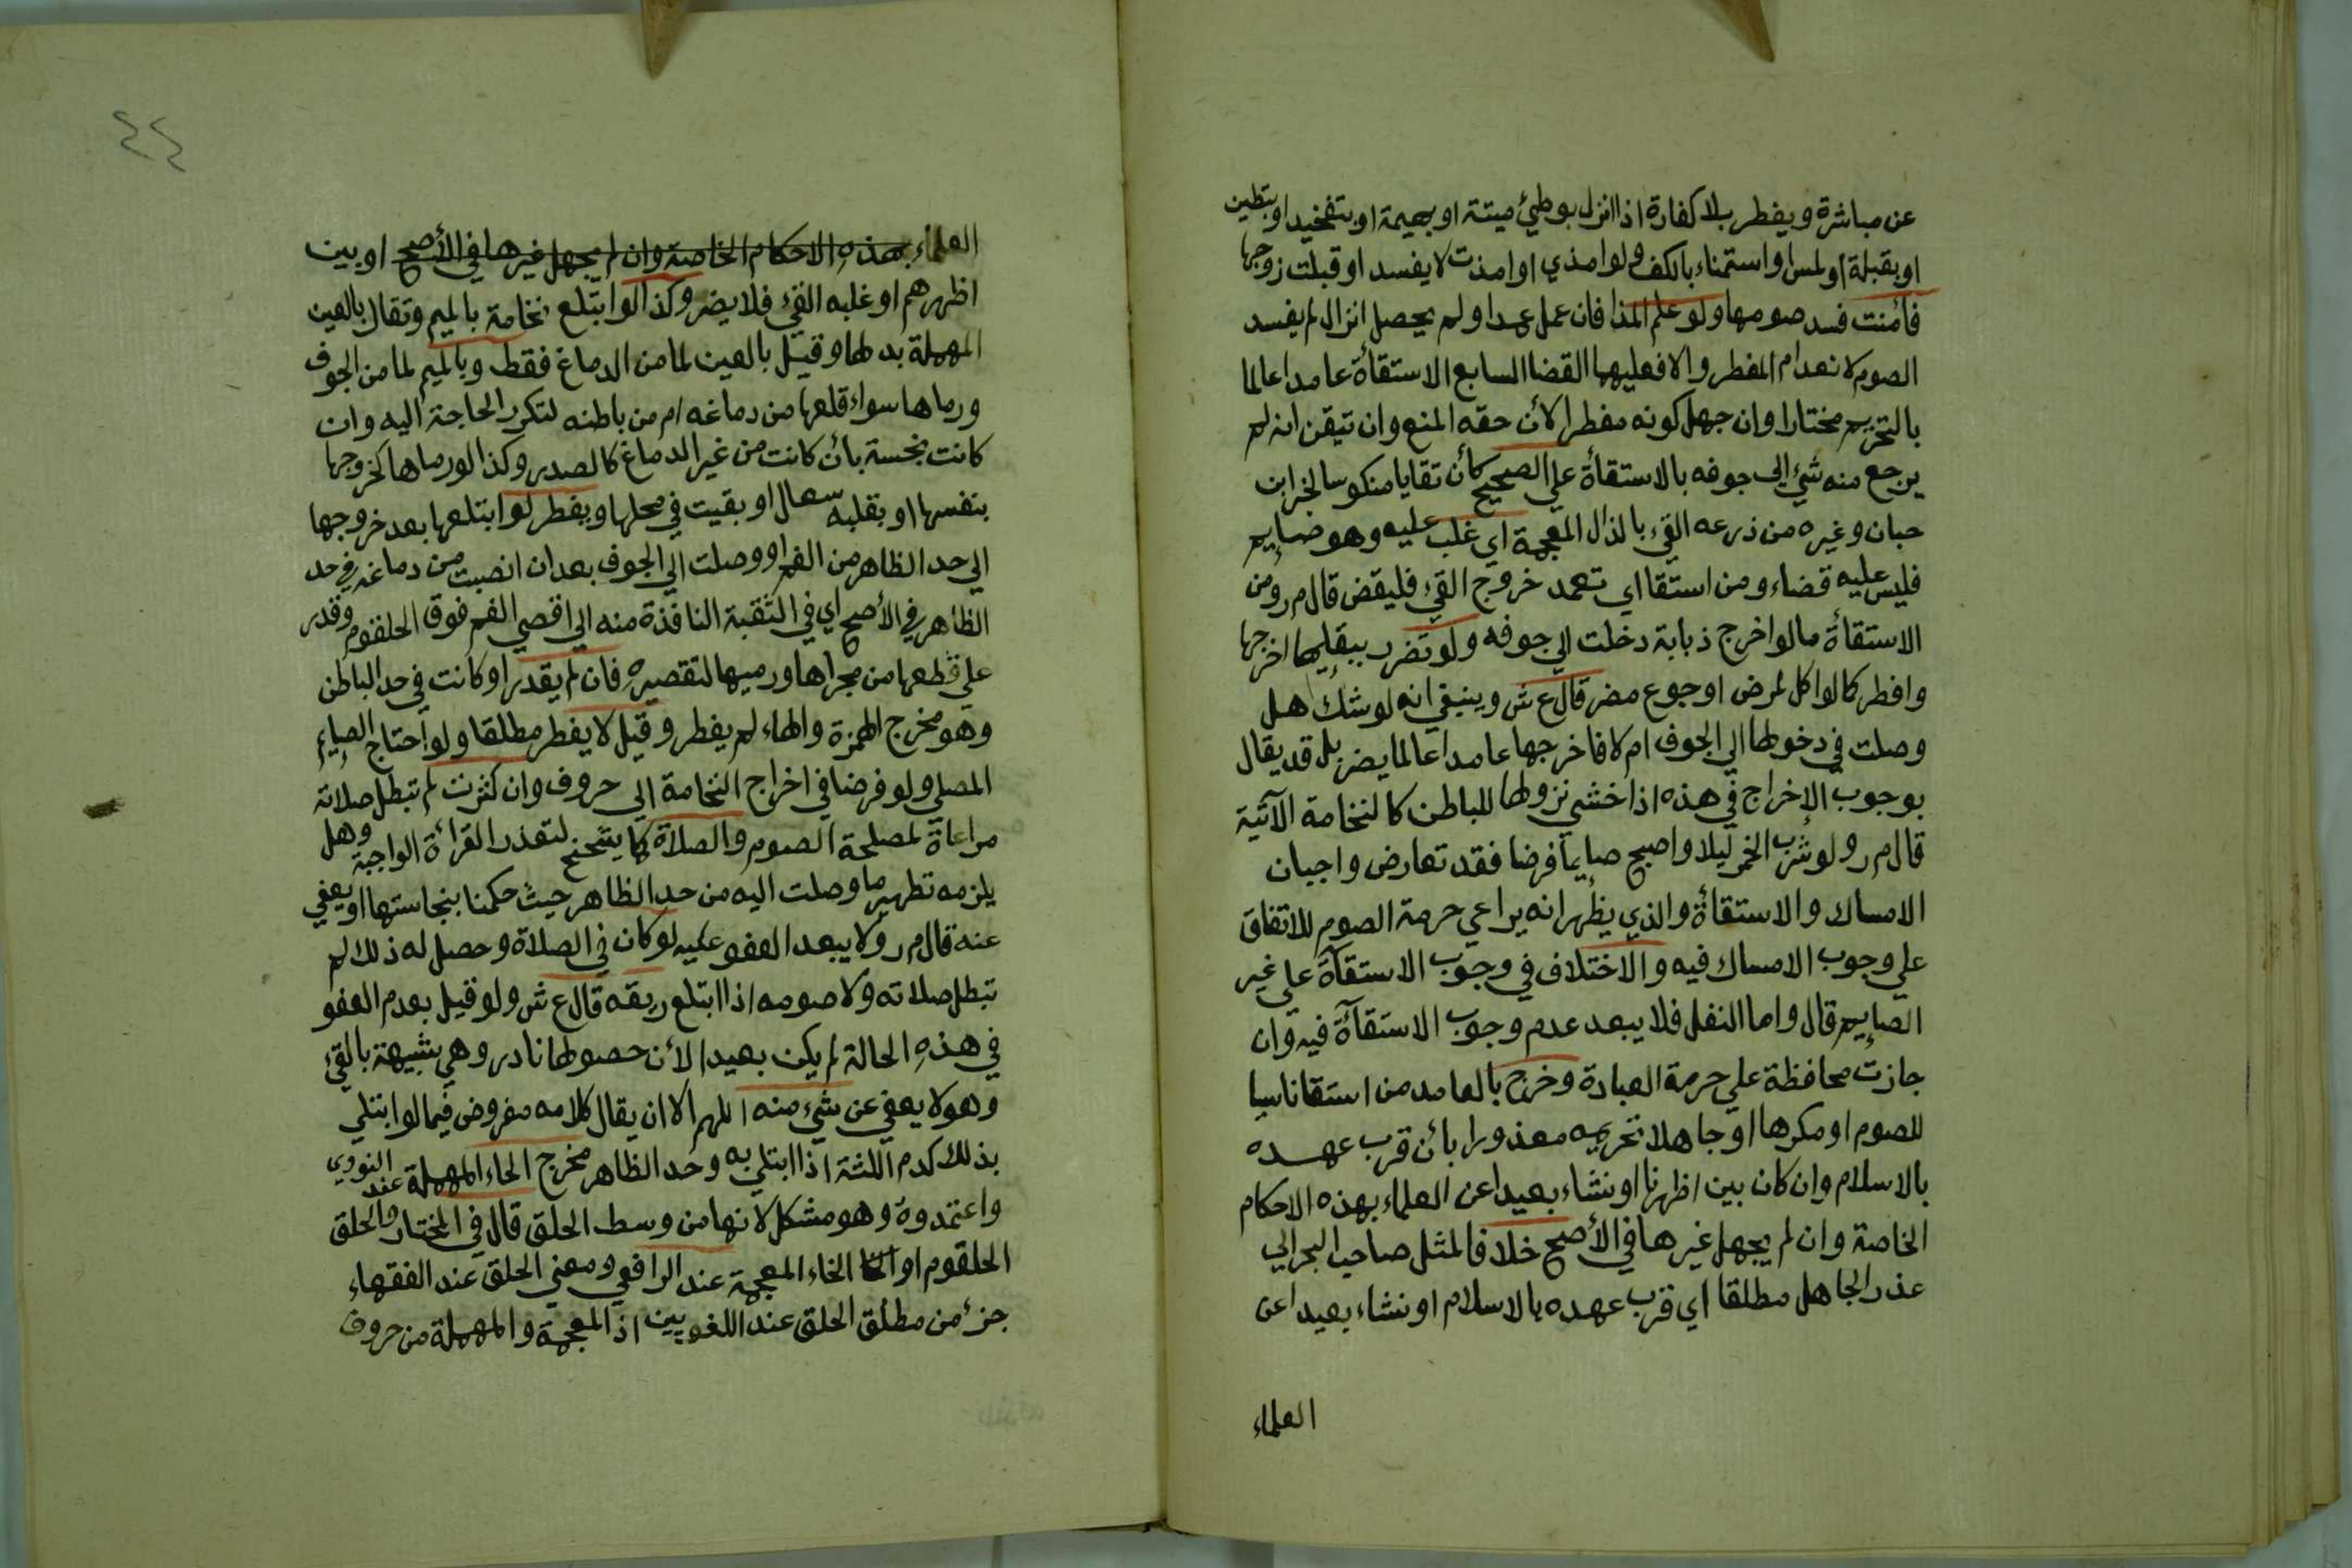 عن مباشرة ويفطر بلا كفارة اذا انزل بوطئ ميتة او بهيمة او بتفخيد او بتطين
او بقبلة او لمس او استمناء بالكف ولو امذي او امذت لا يفسد او قبلت زوجها
فأمنت فسد صومها ولو علم المذا فان عمل عمدا ولم يحصل انزال لم يفسد
الصوم لانعدام المفطر والا فعليهما القضا السابع الاستقأة عامدا عالما
بالتحريم مختارا وان جهل كونه مفطرا لأن حقه المنع وان تيقن انه لم
يرجع منه شئ الي جوفه بالاستقأة علي الصحيح كأن تقايا منكوسا لخبر ابن
حبان وغيره من ذرعه القئ بالذال المعجمة اي غلب عليه وهو صايم
فليس عليه قضاء ومن استقا اي تعمد خروج القئ فليقض قال م ر ومن
الاستقأة ما لو اخرج ذبابة دخلت الي جوفه ولو تضرر ببقايها اخرجها
وافطر كما لو اكل لمرض او جوع مضر قال ع ش وينبغي انه لو شك هل
وصلت في دخولها الي الجوف ام لا فاخرجها عامدا عالما يضر بل قد يقال
بوجوب الاخراج في هذه اذا خشي نزولها للباطن كالنخامة الآتية
قال م ر ولو شرب الخمر ليلا واصبح صايما فرضا فقد تعارض واجبان
الامساك والاستقأة والذي يظهر انه يراعي حرمة الصوم للاتفاق
علي وجوب الامساك فيه والاختلاف في وجوب الاستقآة علي غير
الصايم قال واما النفل فلا يبعد عدم وجوب الاستقآة فيه وان
جازت محافظة علي حرمة العبادة وخرج بالعامد من استقا ناسيا
للصوم او مكرها او جاهلا تحريمه معذورا بأن قرب عهده
بالاسلام وان كان بين اظهرنا او نشاء بعيدا عن العلماء بهذه الاحكام
الخاصة وان لم يجهل غيرها في الأصح خلافا لمثل صاحب البحر الي
عذر الجاهل مطلقا اي قرب عهده بالاسلام او نشاء بعيدا عن
العلماء
٤٤
العلماء بهذه الاحكام الخاصة وان لم يجهل غيرها في الأصح او بين
اظهرهم او غلبه القئ فلا يضر وكذا لو ابتلع نخامة بالميم وتقال بالعين
المهملة بدلها وقيل بالعين لما من الدماغ فقط وبالميم لما من الجوف
ورماها سواء قلعها من دماغه ام من باطنه لتكرر الحاجة اليه وان
كانت نجسة بأن كانت من غير الدماغ كالصدر وكذا لو رماها كخروجها
بنفسها او بقلبه سعال او بقيت في محلها ويفطر لو ابتلعها بعد خروجها
الي حد الظاهر من الفم او وصلت الي الجوف بعد ان انصبت من دماغه في حد
الظاهر في الأصح اي في الثقبة النافذة منه الي اقصي الفم فوق الحلقوم وقدر
علي قطعها من مجراها ورميها لتقصيره فان لم يقدر او كانت في حد الباطن
وهو مخرج الهمزة والهاء لم يفطر وقيل لا يفطر مطلقا ولو احتاج الصايم
المصلي ولو فرضا في اخراج النخامة الي حروف وان كثرت لم تبطل صلاته
مراعاة لمصلحة الصوم والصلاة كما يتنحنح لتعذر القرائة الواجبة وهل
يلزمه تطهير ما وصلت اليه من حد الظاهر حيث حكمنا بنجاستها او يعفي
عنه قال م ر ولا يبعد العفو عليه لو كان في الصلاة وحصل له ذلك لم
تبطل صلاته ولا صومه اذا ابتلع ريقه قال ع ش ولو قيل بعدم العفو
في هذه الحالة لم يكن بعيدا لأن حصولها نادر وهي شبيهة بالقئ
وهو لا يعفي عن شئ منه اللهم الا ان يقال كلامه مفروض فيما لو ابتلي
بذلك كدم اللثة اذا ابتلي به وحد الظاهر مخرج الحاء المهملة عند النووي
واعتمدوة وهو مشكل لانها من وسط الحلق قال في المختار والحلق
الحلقوم او الخاء المعجمة عند الرافعي ومعني الحلق عند الفقهاء
جزء من مطلق الحلق عند اللغويين اذ المعجمة والمهملة من حروف